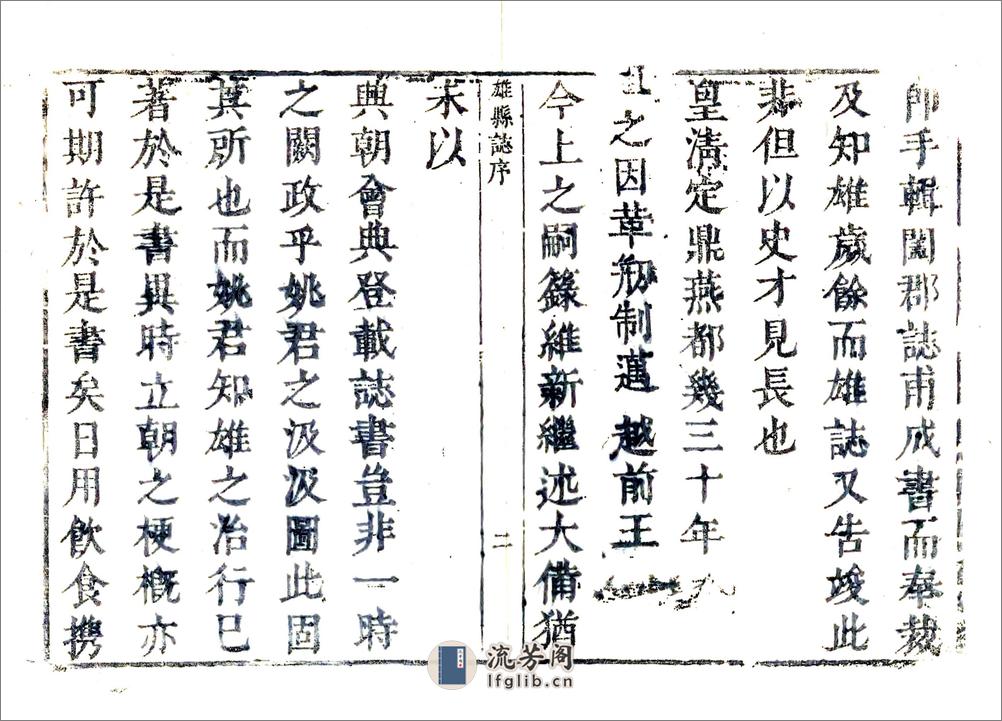 師手輯闔郡誌甫成書而奉裁
及知雄歲餘而雄誌又告竣此
非但以史才見長也
皇清定鼎燕都幾三十年
之因革刱制邁越前王
今上之嗣籙維新繼述大備猶
未以
雄縣誌序
二
興朝會典登載誌書豈非一時
之闕政乎姚君之汲汲圖此固
其所也而姚君知雄之治行已
著於是書異時立朝之梗概亦
可期許於是書矣日用飲食攜
流芳阁
lfglib.cn